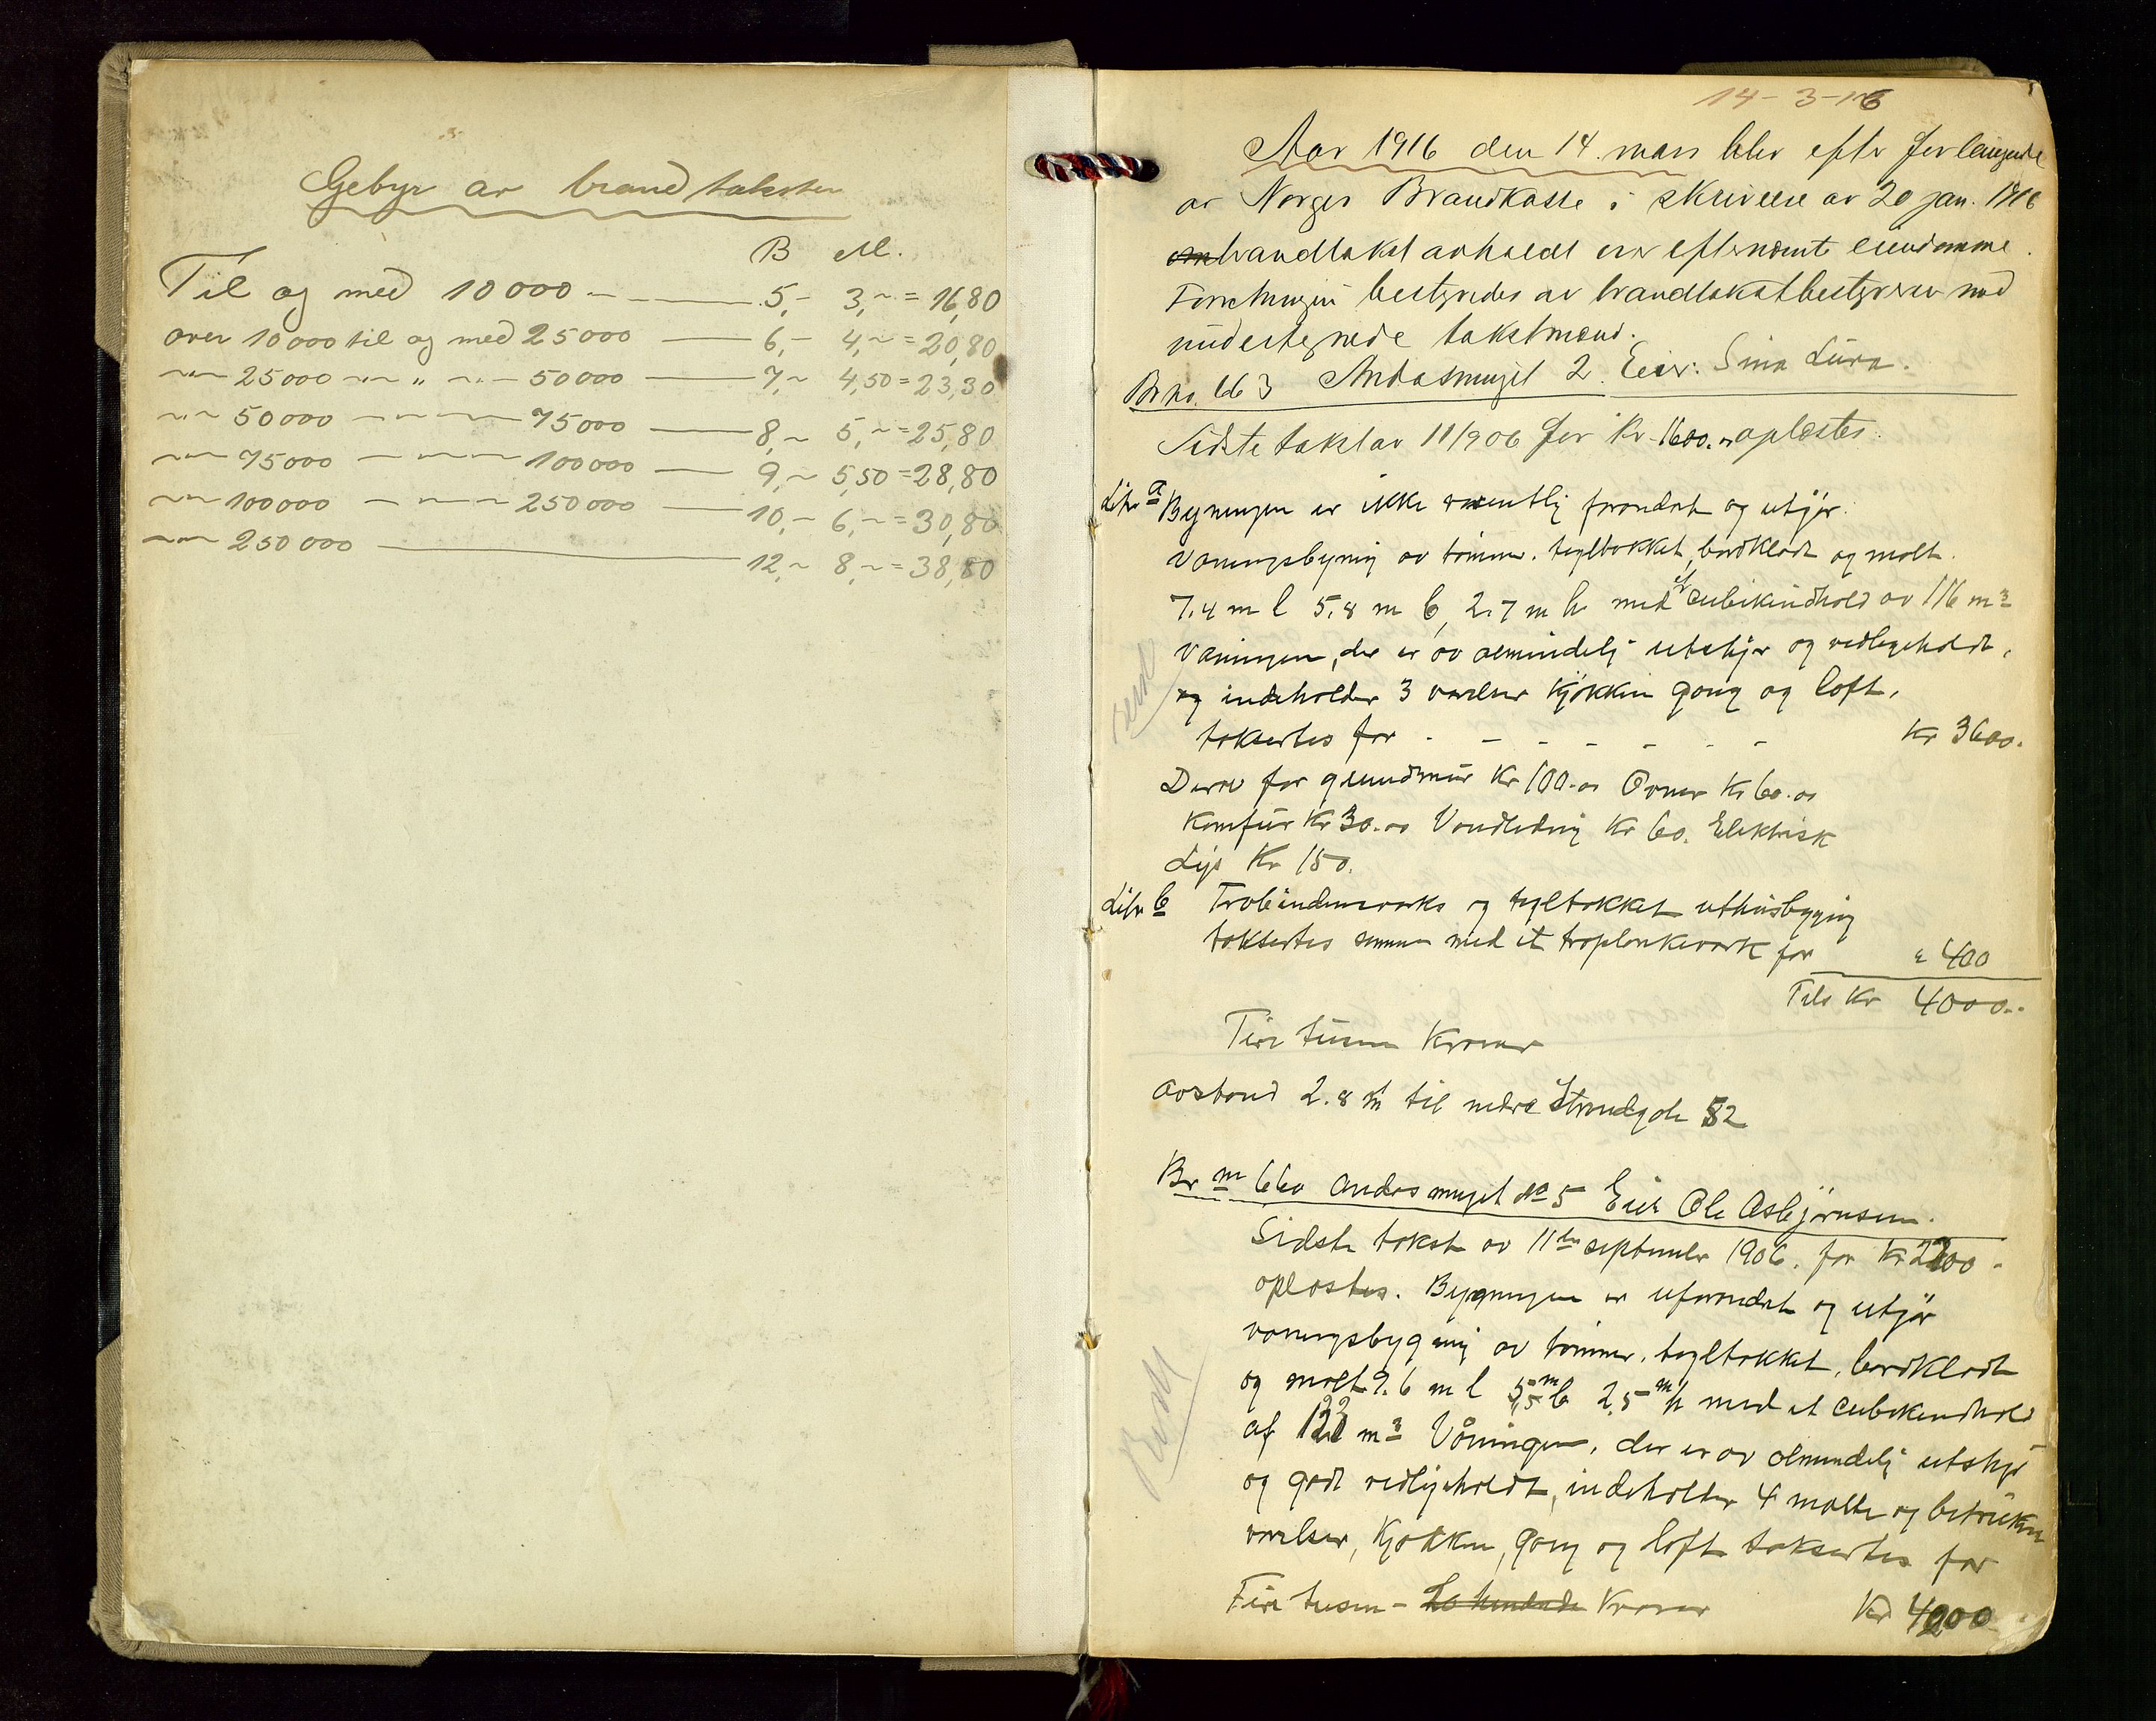 Gebyr av brandtakster
B M.
Til og med 10000 - 5,- 3,- = 16,80
over 10000 til og med 25000 — 6,- 4,- = 20,80
-"- 25000 -"- " -"- 50000 — 7,- 4,50 = 23,30
-"- 50000 — 75000 — 8,- 5,- = 25,80
-"- 75000 — 100000 — 9,- 5,50 = 28,80
-"- 100000 — 250000 — 10,- 6,- = 30,80
-"- 250000 — 12,- 8,- = 38,80
14-3-16
Aar 1916 den 14. mars blev efter forlangende
av Norges Brandkasse i skrivelse av 20 jan. 1916
brandtakst avholdt over efternævnte eiendomme.
Forretningen bestyredes av brandtakstbestyreren med
undertegnede takstmænd.
Br no. 663 Andasmuget 2. Eier: Sina Lura.
Sidste takst av 11/906 for Kr 1600.- oplæstes.
Litr a Bygningen er ikke væsentlig forandret og utgjør.
Vaaningsbygning av tømmer. tegltækket, bordklædt og malt.
7.4 m l 5.8 m b, 2.7 m h med et cubikindhold av 116 m3
Vaaningen, der er av almindelig utstyr og vedligeholdt,
og indeholder 3 værelser Kjøkken gang og loft,
taksertes for - - - - - - - Kr 3600.
Derav for grundmur Kr 100.00 Ovner Kr 60.00
Komfur Kr 30.00 Vandledning Kr 60. Elektrisk
Lys Kr 150.
Litr b Trebindingsverks og tegltækket uthusbygning
taksertes sammen med et træplankeverk for " 400
Tils Kr 4000..
Fire tusen Kroner
avstand 2.8 m til nedre Strandgate 52
Br no 660 Andasmuget No 5 Eier Ole Asbjørnsen.
Sidste takst av 11te september 1906. for Kr 2200 -
oplæstes. Bygningen er uforandret og utgjør
vaaningsbygning av tømmer, tegltækket, bordklædt
og malt 9.6 m l 5,5 m b 2,5 m h med et cubikindhold
af m3 Våningen, der er av almindelig utstyr
og godt vedligeholdt, indeholder 4 malte og betrukne
værelser, Kjøkken, gang og loft taksertes for
Fire tusen - Kroner Kr 4000